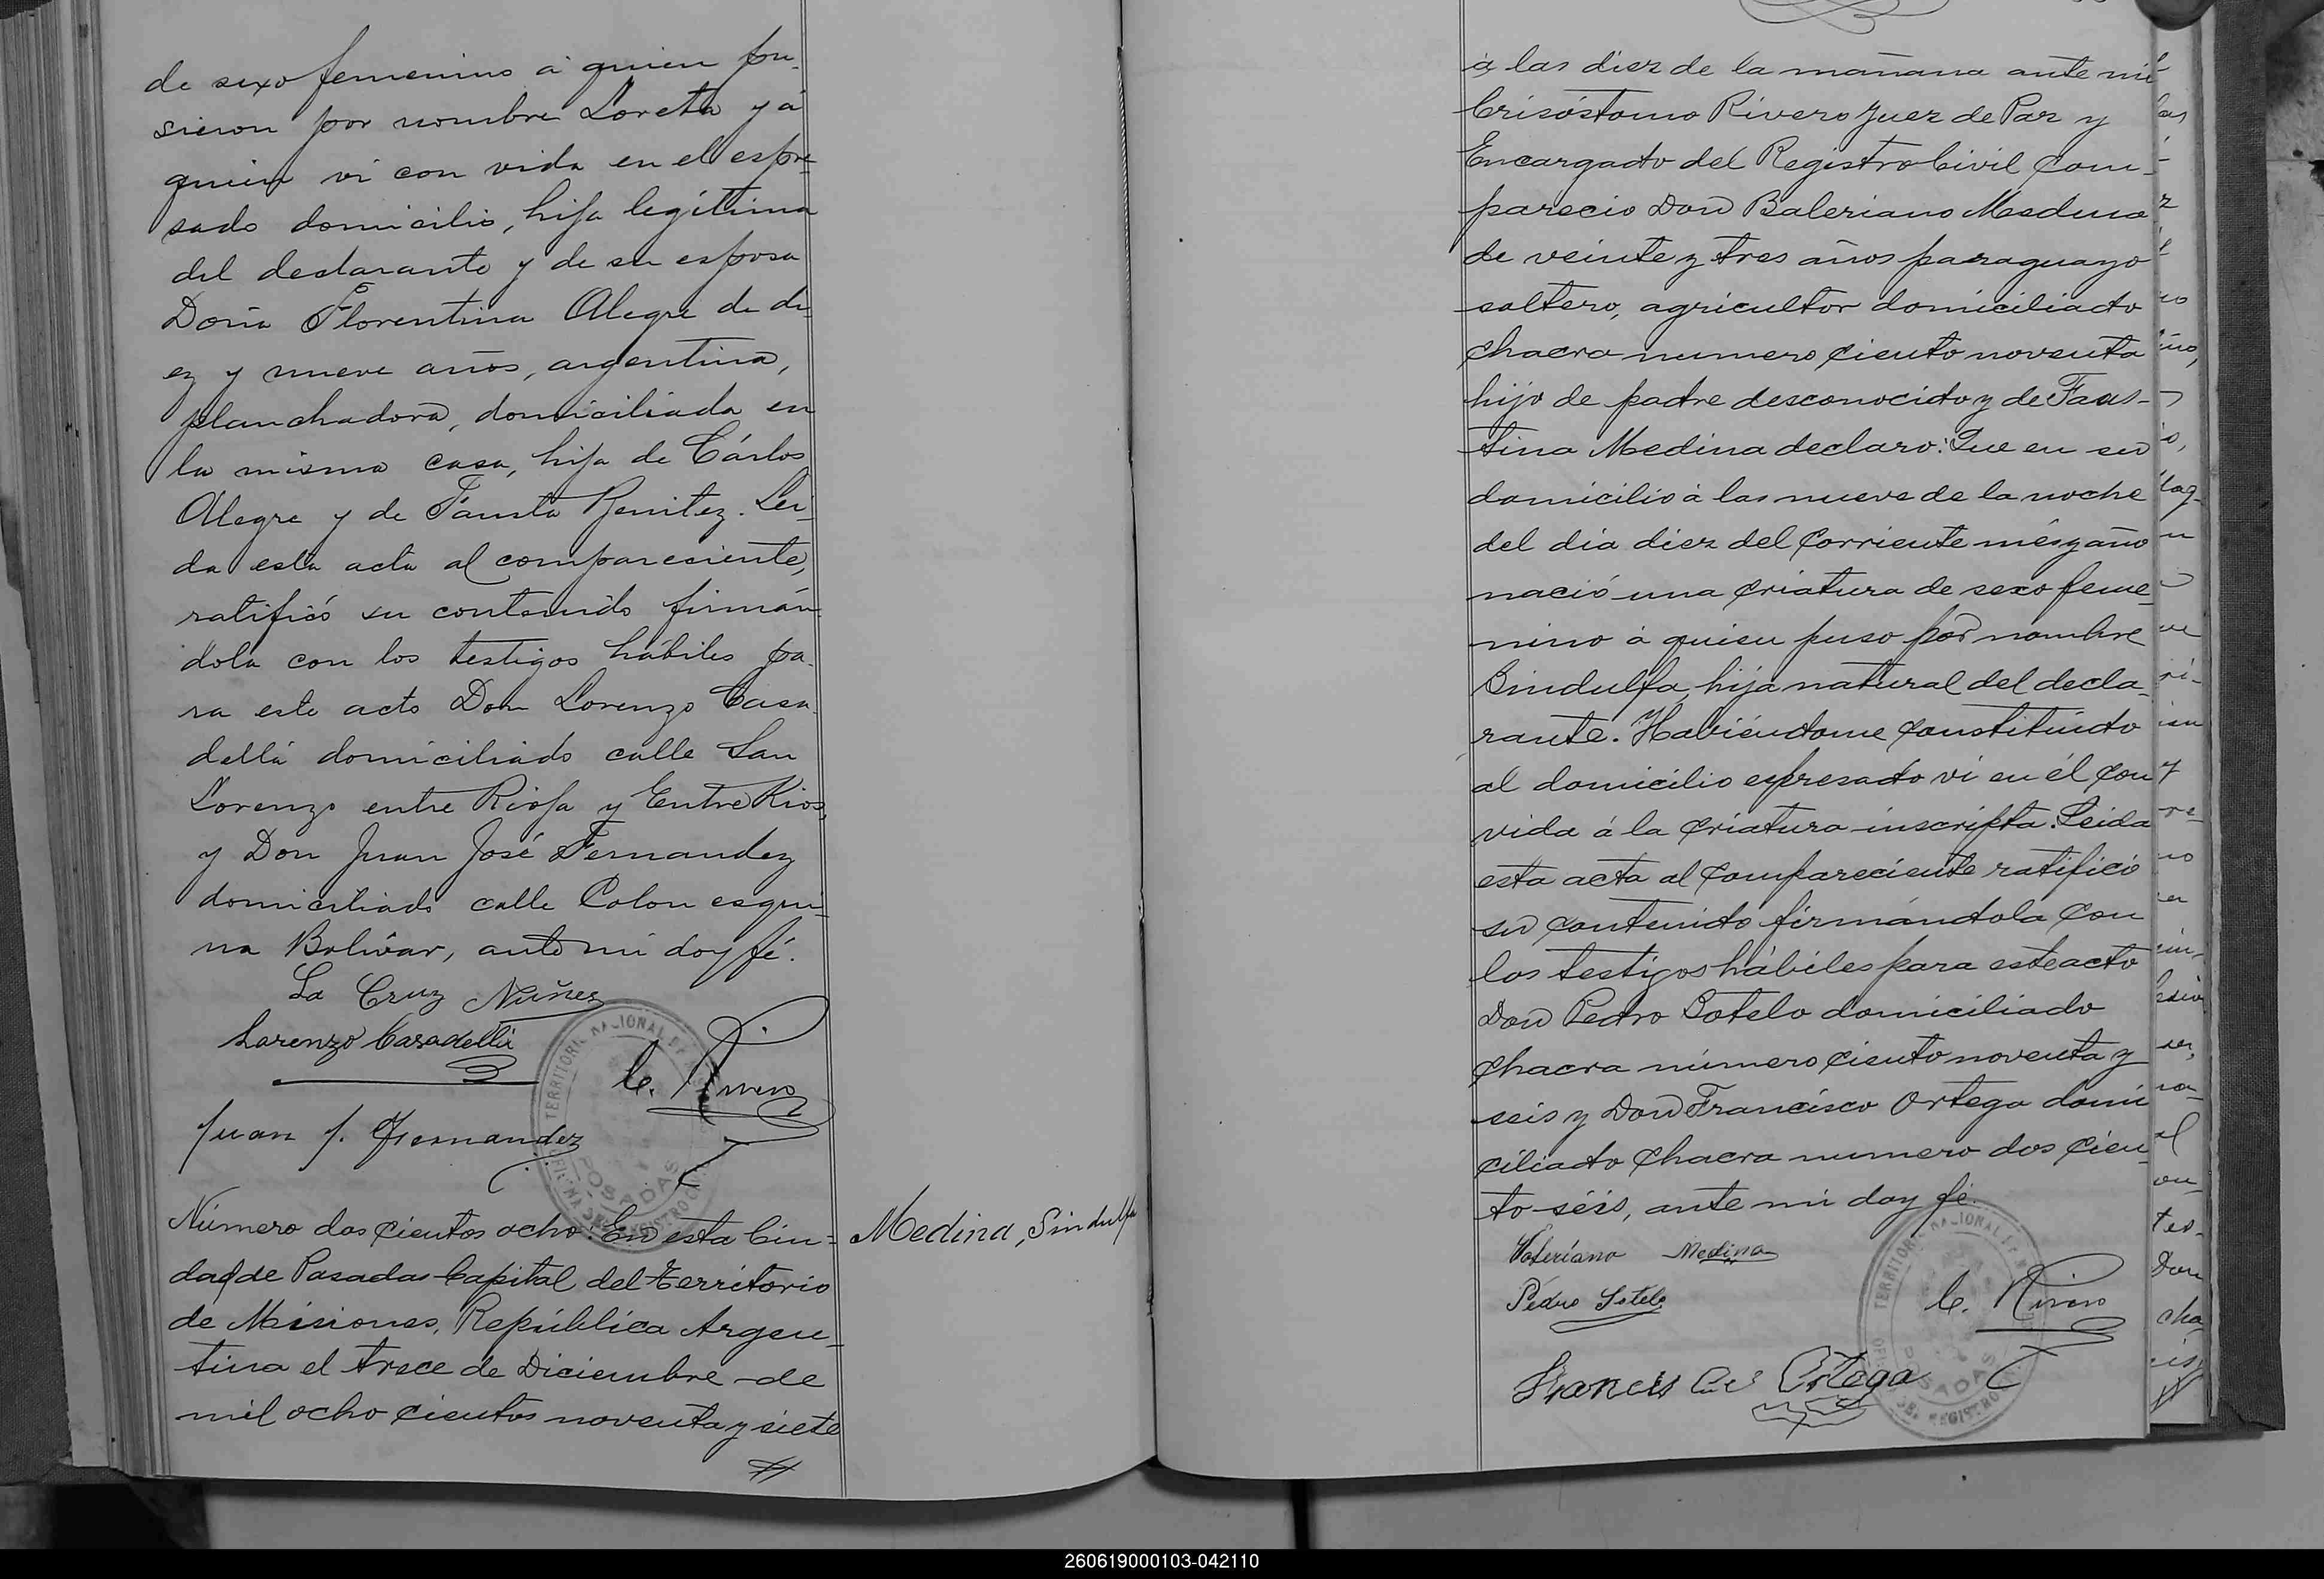 de sexo femenino á quien pu-
sieron por nombre Loreta y á
quien vi con vida en el espre-
sado domicilio, hija legítima
del declarante y de su esposa
Doña Florentina Alegre de di-
ez y nueve años, argentina,
planchadora, domiciliada en
la misma casa, hija de Cárlos
Alegre y de Fausta Benitez. Lei-
da esta acta al compareciente,
ratificó su contenido firmán-
dola con los testigos hábiles pa-
ra este acto Don Lorenzo Casa-
dellá domiciliado calle San
Lorenzo entre Rioja y Entre Rios,
y Don Juan José Fernandez
domiciliado calle Colon esqui-
na Bolívar, ante mi doy fé.
La Cruz Nuñez
Lorenzo Casadellá
C. Rivero
Juan J. Fernandez
TERRITORIO NACIONAL DE
POSADAS
REGISTRO
Número dos cientos ocho: En esta Ciu-
dad de Posadas Capital del Territorio
de Misiones, República Argen-
tina el trece de Diciembre de
mil ocho cientos noventa y siete
Medina, Sindulfa
á las diez de la mañana ante mí
Crisóstomo Rivero Juez de Paz y
Encargado del Registro Civil com-
pareció Don Baleriano Medina
de veinte y tres años paraguayo
soltero, agricultor domiciliado
chacra numero ciento noventa
hijo de padre desconocido y de Faus-
tina Medina declaro: Que en su
domicilio á las nueve de la noche
del dia diez del corriente més y año
nació una criatura de sexo feme-
nino á quien puso por nombre
Sindulfa, hija natural del decla-
rante. Habiéndome constituido
al domicilio espresado vi en él con
vida á la criatura inscripta. Leida
esta acta al compareciente ratificó
su contenido firmándola con
los testigos hábiles para este acto
Don Pedro Sotelo domiciliado
chacra número ciento noventa y
seis y Don Francisco Ortega domi
ciliado chacra numero dos cien-
to séis, ante mi doy fé.
Valeriano Medina
Pedro Sotelo
C. Rivero
Francisco Ortega
TERRITORIO NACIONAL DE
POSADAS
DEL REGISTRO
260619000103-042110